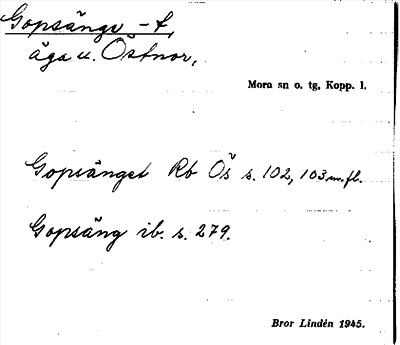 Gopsänge -t,
äga u. Östnor,
Mora sn o. tg. Kopp. l.
Gopsänget Rb Ös s. 102, 103 m. fl.
Gopsäng ib. s. 279.
Bror Lindén 1945.